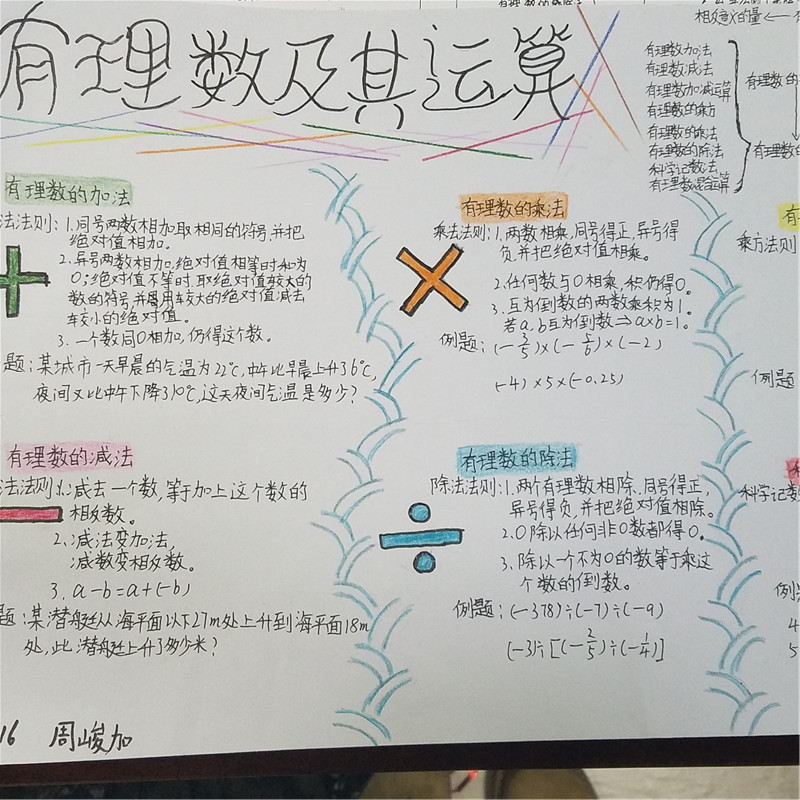 有理数及其运算
相反意义的量
有理数加法
有理数减法
有理数加减运算
有理数的乘方
有理数的乘法
有理数的除法
科学记数法
有理数混合运算
有理数的
有理数的
有理数的加法
法法则:1.同号两数相加取相同的符号,并把
绝对值相加。
2.异号两数相加,绝对值相等时和为
0;绝对值不等时,取绝对值较大的
数的符号,并用较大的绝对值减去
较小的绝对值。
3.一个数同0相加,仍得这个数。
题:某城市一天早晨的气温为22℃,中午比早晨上升6℃,
夜间又比中午下降了10℃,这天夜间气温是多少?
有理数的减法
法法则:1.减去一个数,等于加上这个数的
相反数。
2.减法变加法,
减数变相反数。
3.a-b=a+(-b)
题:某潜艇从海平面以下27m处上升到海平面18m
处,此潜艇上升了多少米?
16 周峻加
有理数的乘法
乘法法则:1.两数相乘,同号得正,异号得
负,并把绝对值相乘。
2.任何数与0相乘,积仍得0。
3.互为倒数的两数乘积为1。
若a,b互为倒数⇒a×b=1。
例题:(-3/5)×(-5/6)×(-2)
(-4)×5×(-0.25)
有理数的除法
除法法则:1.两个有理数相除,同号得正,
异号得负,并把绝对值相除。
2.0除以任何非0数都得0。
3.除以一个不为0的数等于乘这
个数的倒数。
例题:(-378)÷(-7)÷(-9)
(-3)÷[(-2/5)÷(-1/4)]
有
乘方法则
例题
科学记数
例
4
5